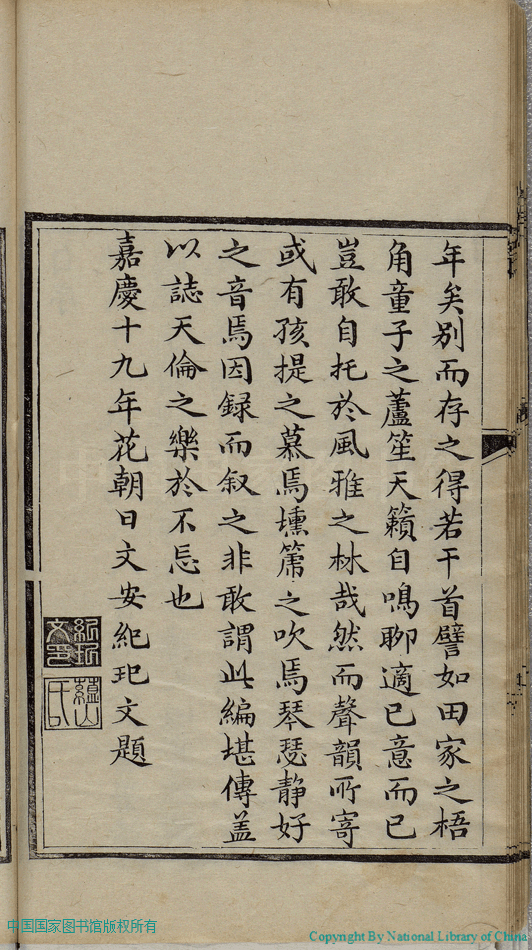 年矣別而存之得若干首譬如田家之梧
角童子之蘆笙天籟自鳴聊適已意而已
豈敢自托於風雅之林哉然而聲韻所寄
或有孩提之慕焉壎箎之吹焉琴瑟靜好
之音焉因録而叙之非敢謂此編堪傳蓋
以誌天倫之樂於不忘也
嘉慶十九年花朝日文安紀玘文題
蘊山氏
中国国家图书馆版权所有
Copyright By National Library of China